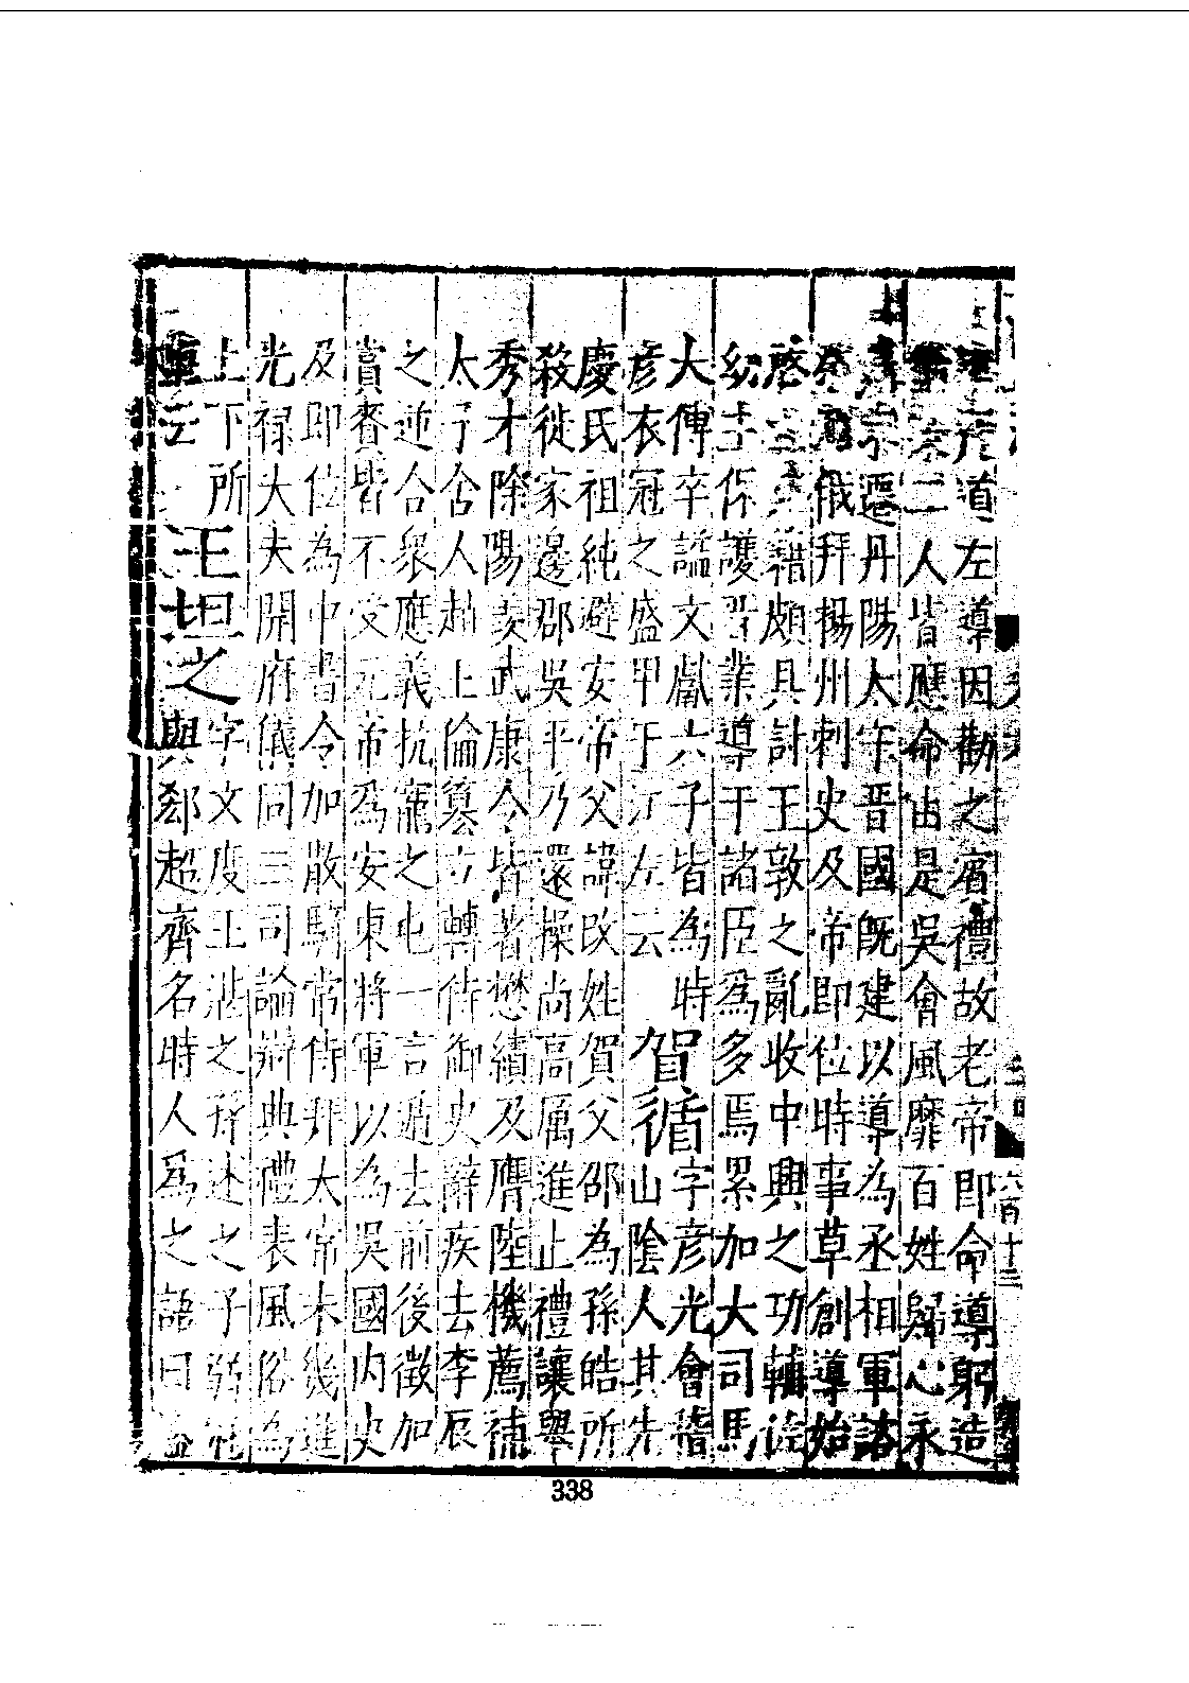 六百十三
道左導因勸之賓禮故老帝即命導躬造
二人皆應命由是吳會風靡百姓歸心永
宗遷丹陽太守晉國既建以導為丞相軍諮
俄拜揚州刺史及帝即位時事草創導始
啓籍頗具計王敦之亂收中興之功輔佐
幼主保護業導于諸臣爲多焉累加大司馬
大傅卒謚文獻六子皆為時
彥衣冠之盛甲于江左云
賀循
字彥光會稽
山陰人其先
慶氏祖純避安帝父諱改姓賀父邵為孫皓所
殺徙家邊郡吳平乃還操尚高厲進止禮讓舉
秀才除陽羨武康令皆著懋績及膺陸機薦補
太子舍人趙王倫篡立轉侍御史辭疾去李辰
之逆合衆應義抗寵之屯一言遁去前後徵加
賞賚皆不受元帝爲安東將軍以為吳國內史
及即位為中書令加散騎常侍拜太常未幾進
光禄大夫開府儀同三司論辯典禮表風俗為
上下所
重云
王坦之
字文度王湛之孫述之子弱冠
與郄超齊名時人爲之語曰盛
338